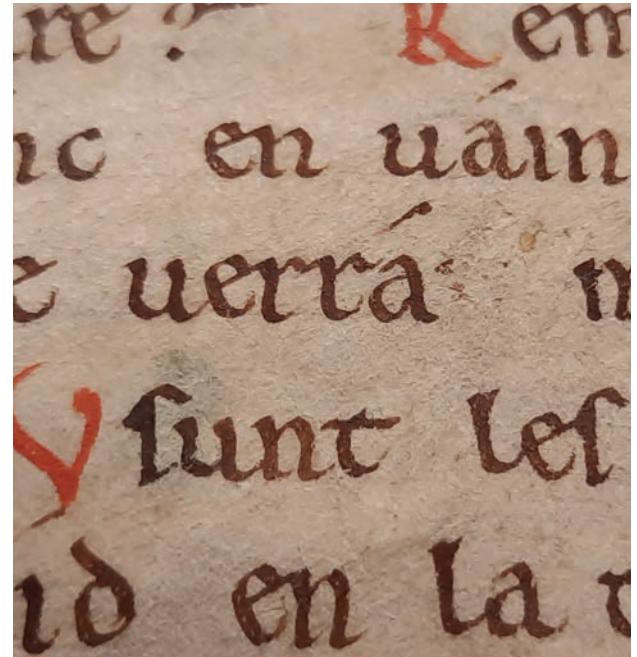 re R em
ic en uáin
e uerrá· m
V ſunt leſ
id en la